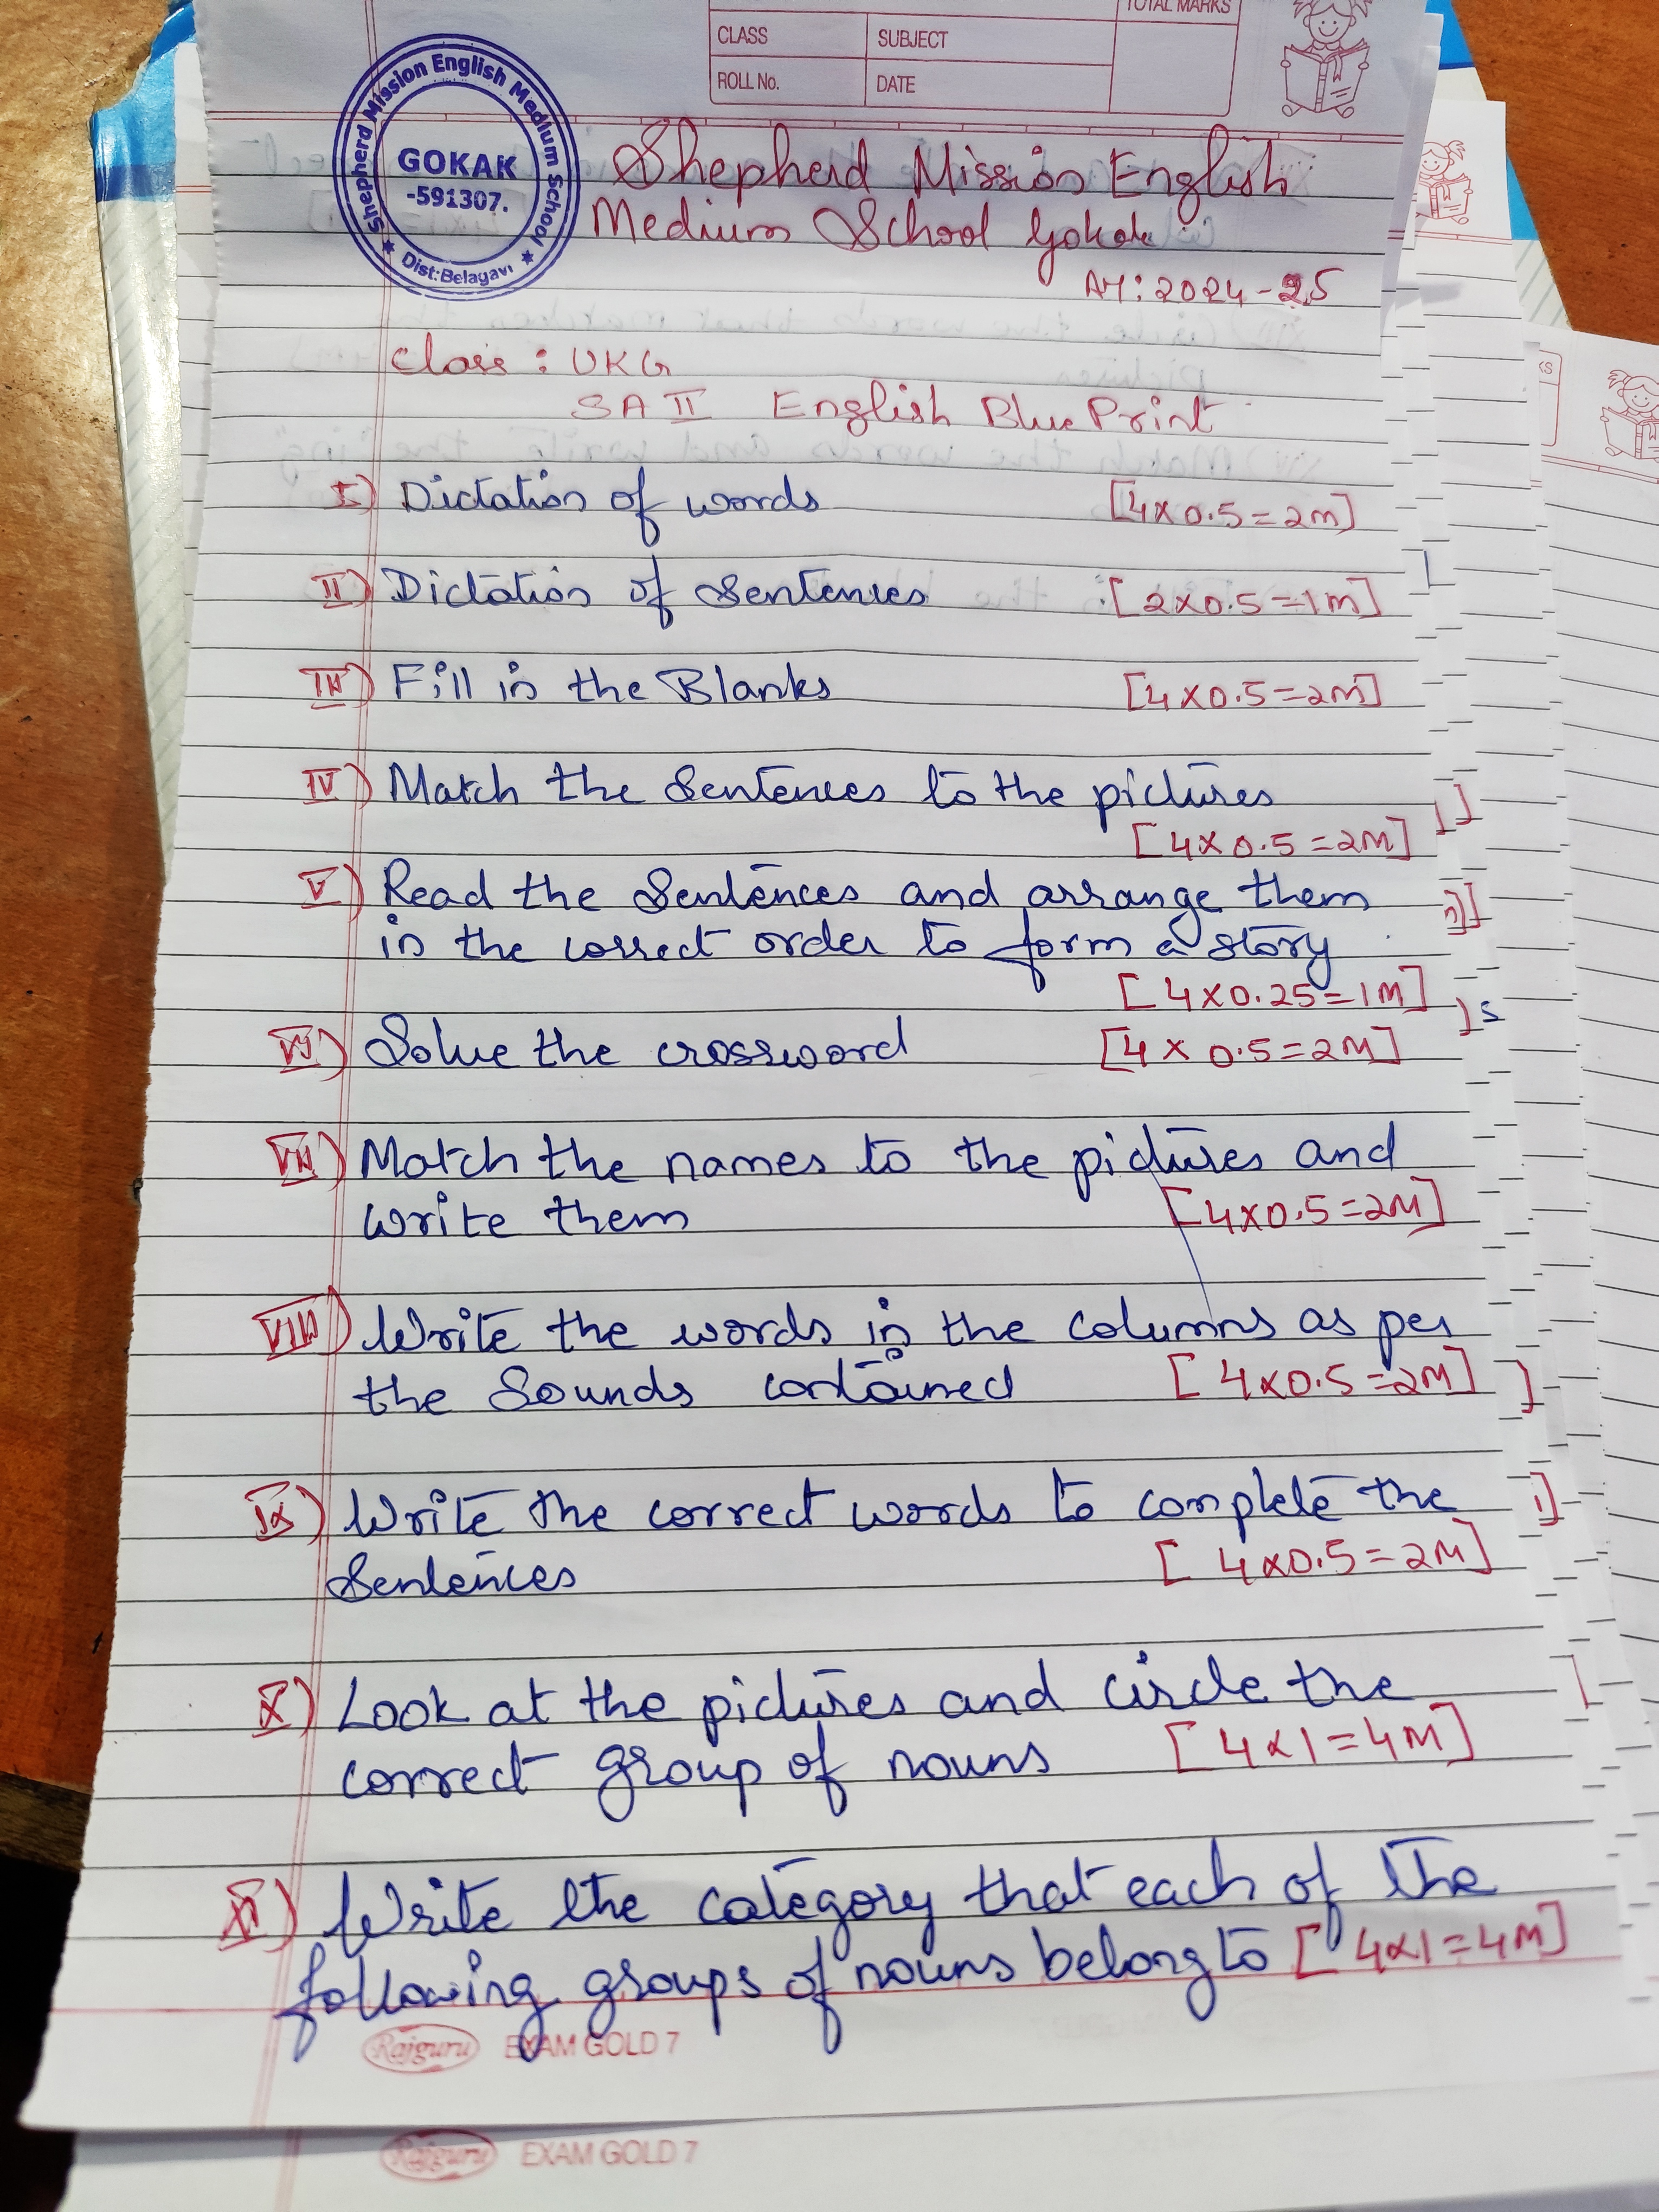 TOTAL MARKS
CLASS
SUBJECT
ROLL No.
DATE
Shepherd Mission English Medium School
GOKAK
-591307.
Dist:Belagavi
Shepherd Mission English
Medium School Gokak
AY: 2024-25
Class : UKG
SA II English Blue Print
I) Dictation of words [4x0.5=2M]
II) Dictation of Sentences [2x0.5=1M]
III) Fill in the Blanks [4x0.5=2M]
IV) Match the Sentences to the pictures
[4x0.5=2M]
V) Read the Sentences and arrange them
in the correct order to form a story
[4x0.25=1M]
VI) Solve the crossword [4x0.5=2M]
VII) Match the names to the pictures and
write them [4x0.5=2M]
VIII) Write the words in the columns as per
the Sounds contained [4x0.5=2M]
IX) Write the correct words to complete the
Sentences [4x0.5=2M]
X) Look at the pictures and circle the
correct group of nouns [4x1=4M]
XI) Write the category that each of the
following groups of nouns belong to [4x1=4M]
Rajguru EXAM GOLD 7
Rajguru EXAM GOLD 7